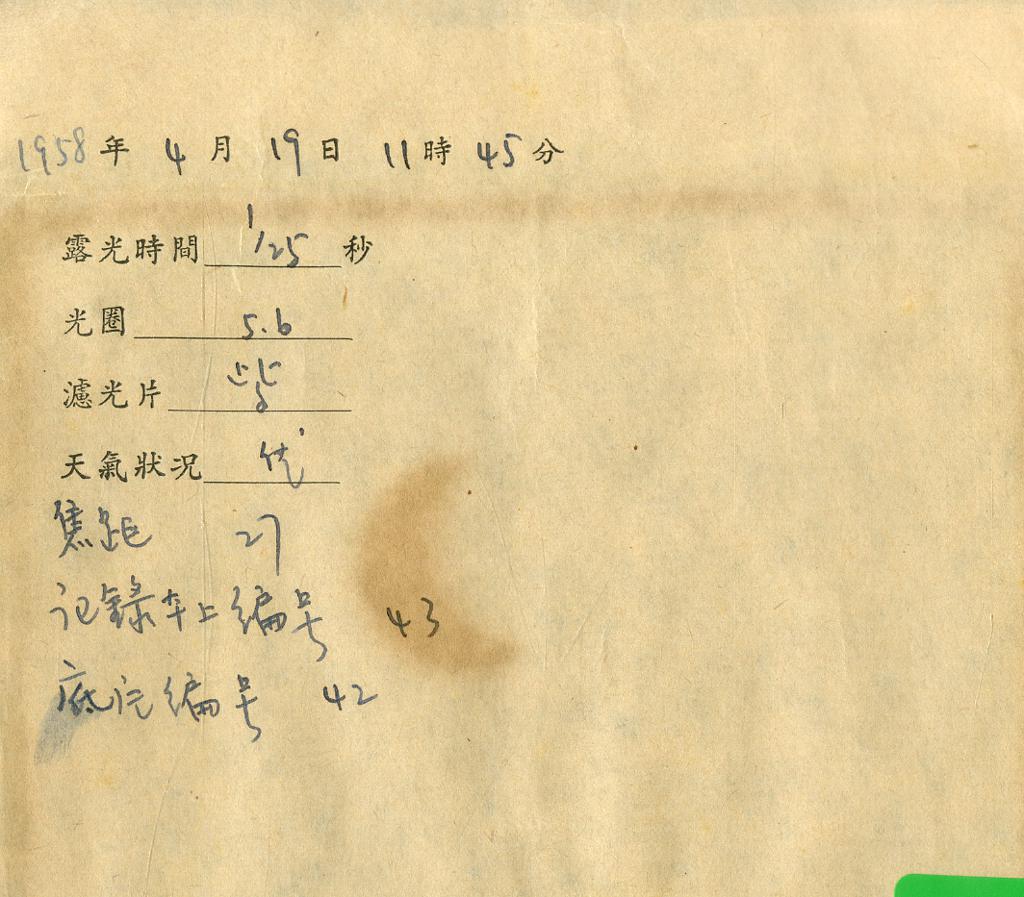 1958年 4月 19日 11時 45分
露光時間 1/25 秒
光圈 5.6
濾光片
天氣狀況 优
焦距 27
记錄本上編号 43
底片編号 42